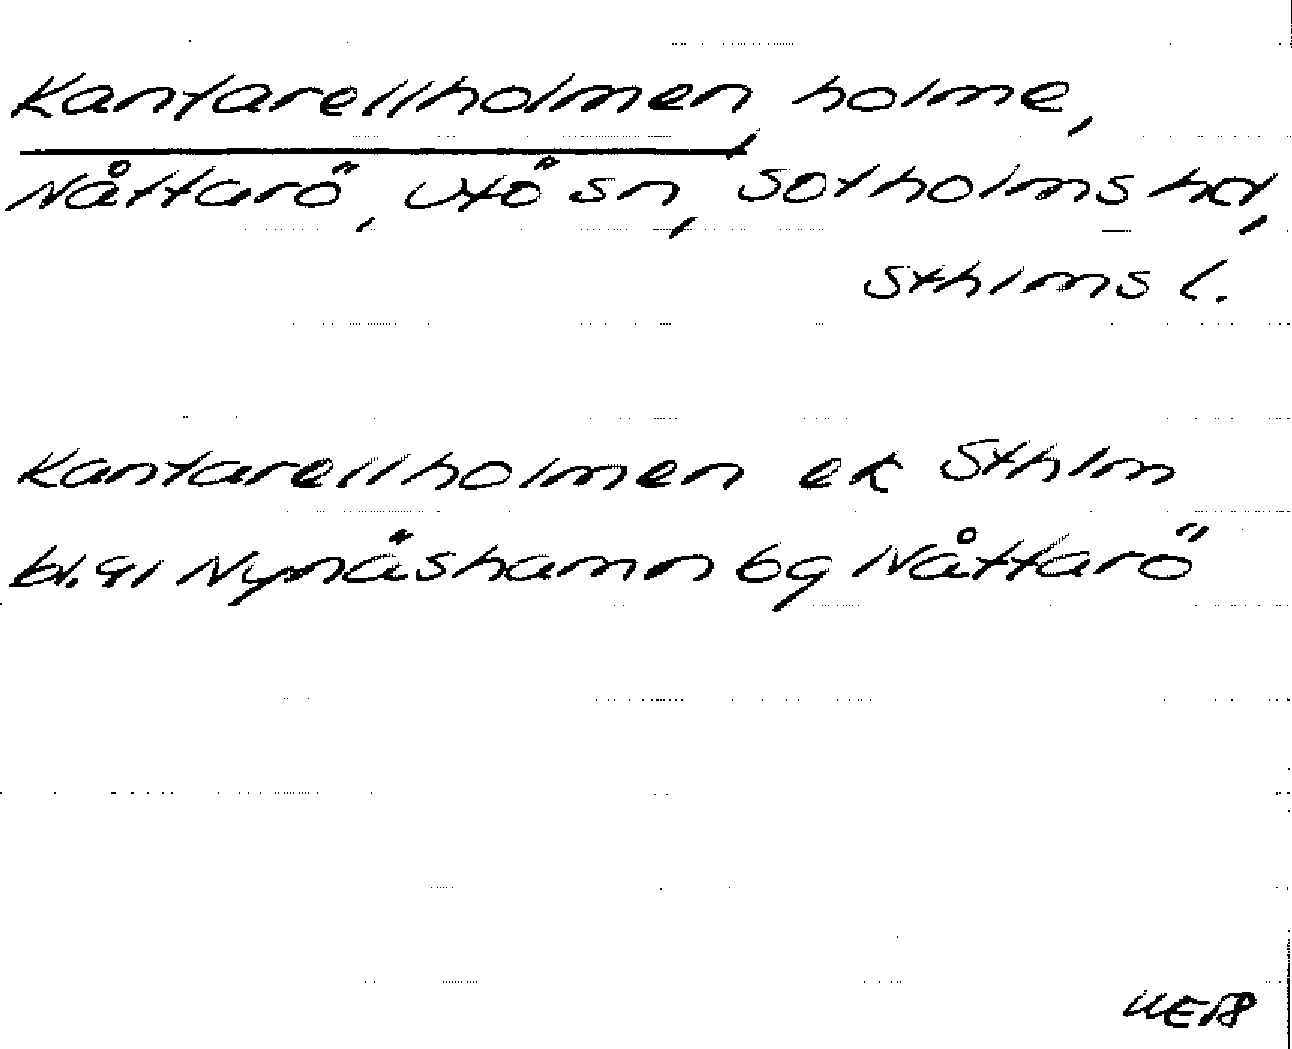 Kantarellholmen, holme,
Nåttarö, Utö sn, Sotholms hd,
Sthlms l.
Kantarellholmen ek Sthlm
bl. 91 Nynäshamn 6g Nåttarö